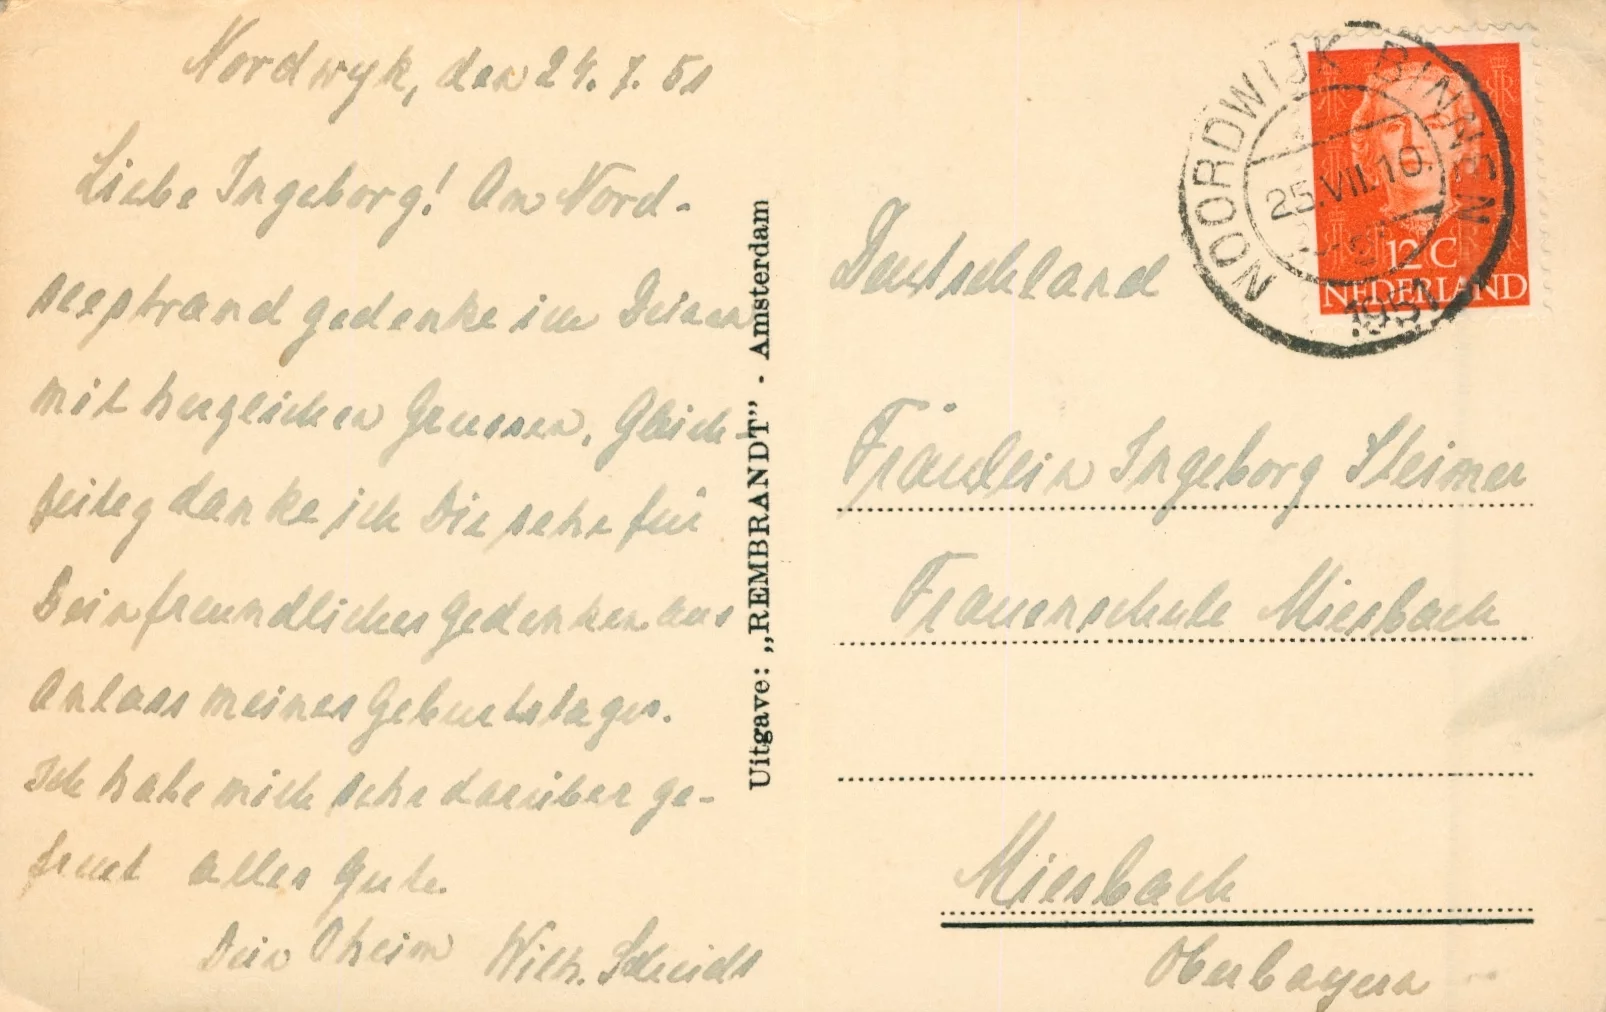 Nordwyk, den 24. 7. 51
Liebe Ingeborg! Am Nord-
seestrand gedenke ich Deiner
mit herzlichen Gruessen. Gleich-
zeitig danke ich Dir sehr für
Dein freundliches Gedenken aus
Anlass meines Geburtstages.
Ich habe mich sehr darüber ge-
freut alles Gute.
Dein Oheim Wilh.
Uitgave: „REMBRANDT” - Amsterdam
NOORDWIJK BINNEN
25.VII.10.
1951
12 C
NEDERLAND
Deutschland
Fräulein Ingeborg Steimer
Frauenschule Miesbach
Miesbach
Oberbayern